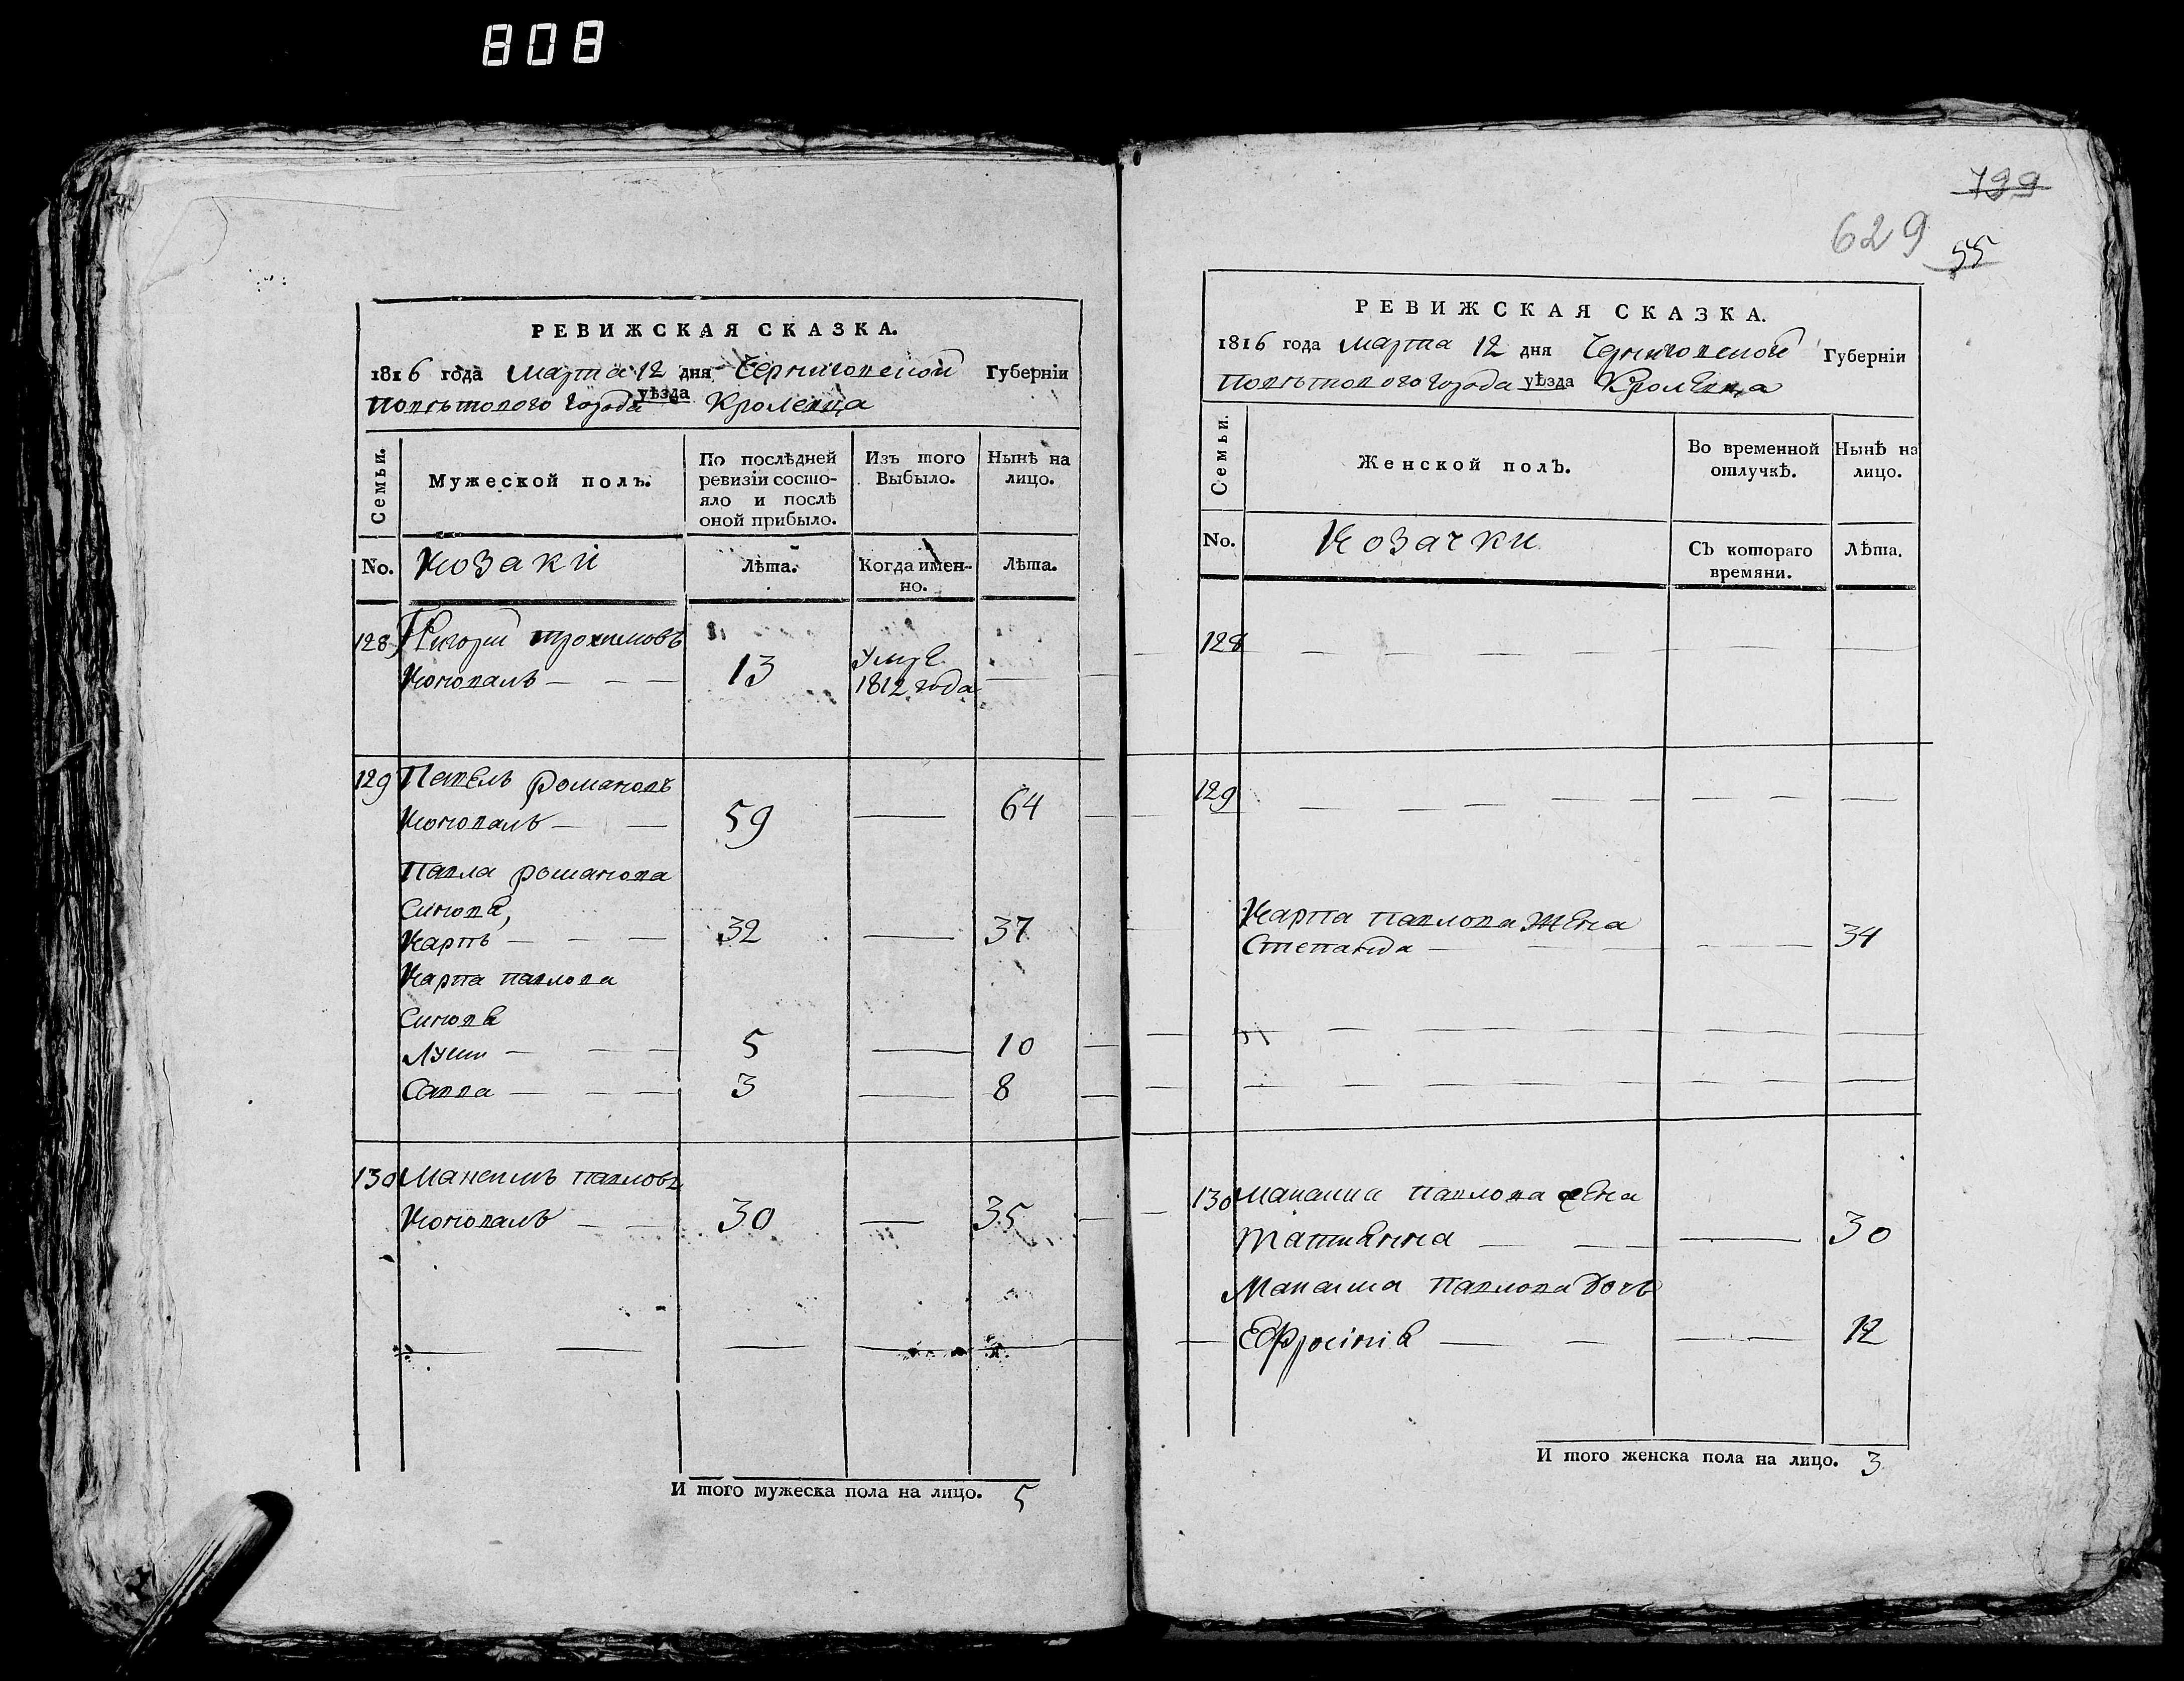 808
РЕВИЖСКАЯ СКАЗКА.
1816 года Марта 12 дня Черниговской Губерніи
Повѣтового города уѣзда Кролевца
Семьи.
Мужеской полъ.
По послѣдней ревизіи состояло и послѣ оной прибыло.
Изъ того Выбыло.
Нынѣ на лицо.
No. Козаки Лѣта. Когда именно. Лѣта.
128 Григорій трохимовъ
Коновалъ — — — 13 Умре 1812 года —
129 Павелъ романовъ
Коновалъ — — 59 — 64
Павла романова
Синовя,
Карпъ — — — 32 — 37
Карпа павлова
Синовя
Луки — — — 5 — 10
Савва — — — 3 — 8
130 Максимъ павловъ
Коновалъ — — 30 — 35
И того мужеска пола на лицо. 5
799
629
55
РЕВИЖСКАЯ СКАЗКА.
1816 года Марта 12 дня Черниговской Губерніи
Повѣтового города уѣзда Кролевца
Семьи.
Женской полъ.
Во временной отлучкѣ.
Нынѣ на лицо.
No. Козачки Съ котораго времяни. Лѣта.
128 — — — — — — —
129 — — — — — — —
Карпа павлова жена
Степанида — — — — — 34
130 Максима павлова жена
Татиянна — — — — 30
Максима павлова дочь
Ефросінія — — — — 12
И того женска пола на лицо. 3